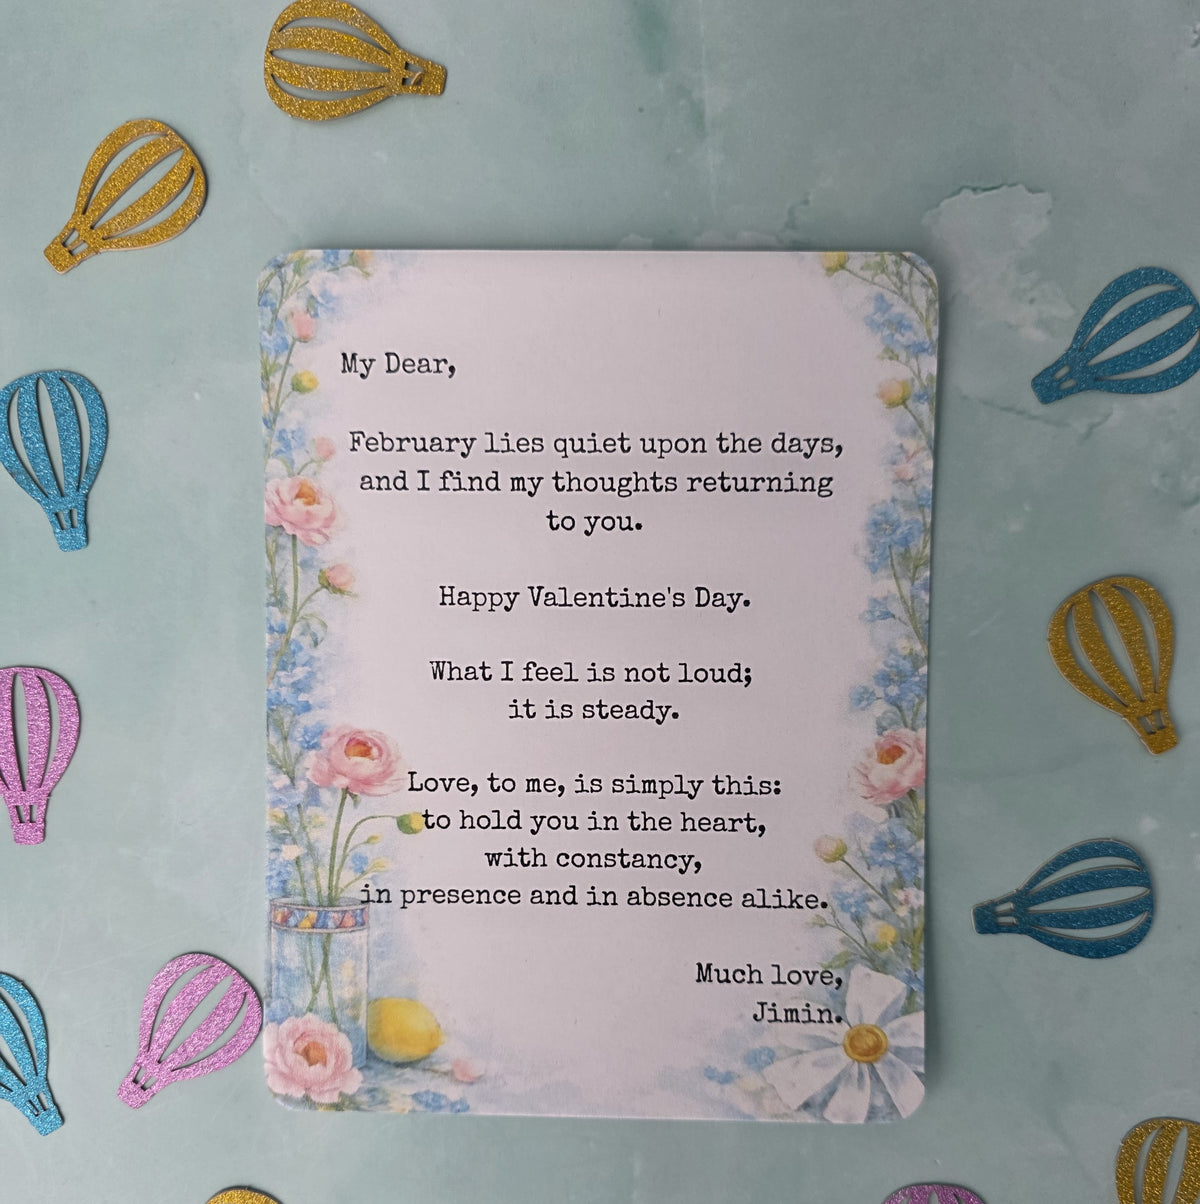 My Dear,
February lies quiet upon the days,
and I find my thoughts returning
to you.
Happy Valentine's Day.
What I feel is not loud;
it is steady.
Love, to me, is simply this:
to hold you in the heart,
with constancy,
in presence and in absence alike.
Much love,
Jimin.